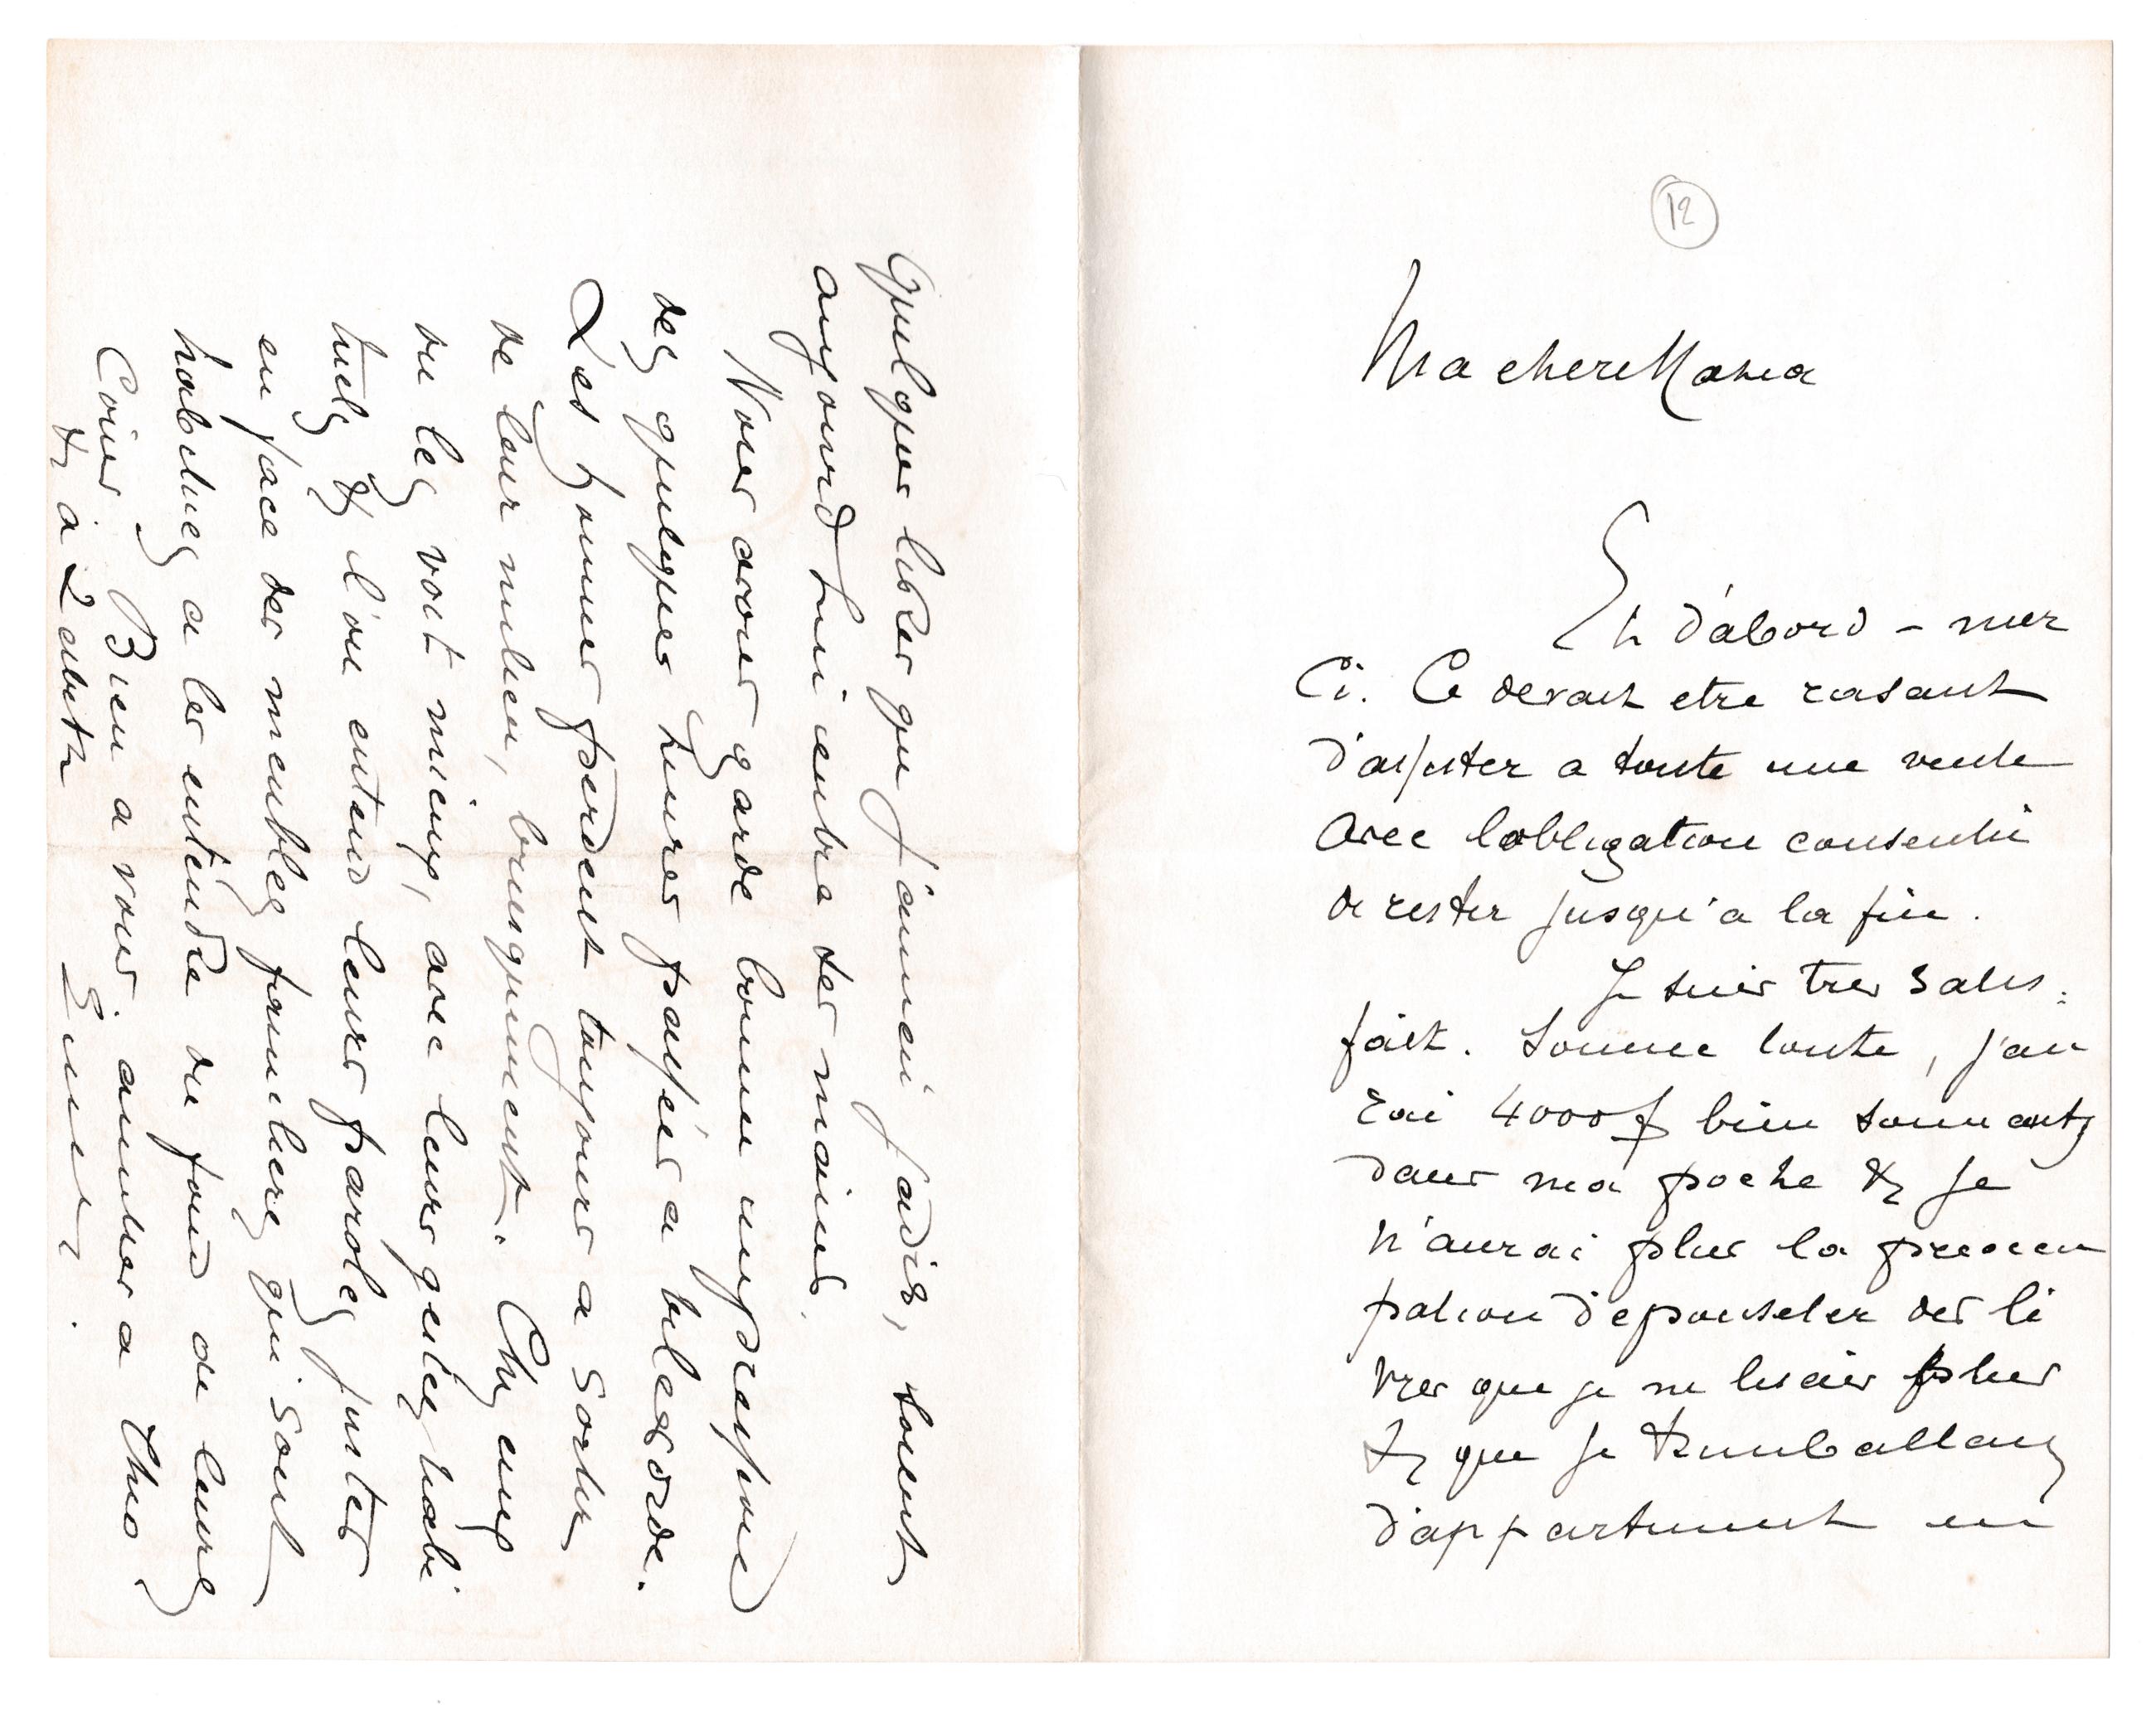 12
Ma chere Mania
Eh d'abord – mer
ci. Ce devait etre rasant
d'assister a toute une vente
avec l'obligation consentie
de rester jusqu'a la fin.
Je suis tres satis=
fait. Somme toute, j'au
rai 4000f bien sonnants
dans ma poche & je
n'aurai plus la preoccu
pation d'epousseter des li
vres que je ne lisais plus
& que je trimballais
d'appartement en
Quelques livres que j'aimai jadis, sont
aujourd'hui entre des mains
Vous avez gardé bonne impression
des quelques heures passées a bilesorde.
Les hommes perdent toujours a sortir
de leur milieu, brusquement. Chez eux
on les voit mieux, avec leurs gestes habi
tuels & l'on entend leurs paroles justes
en face des meubles familiers qui sont
habitués a les entendre du fond de leurs
Coins. Bien a vous. amities a Theo
& a Zabeth